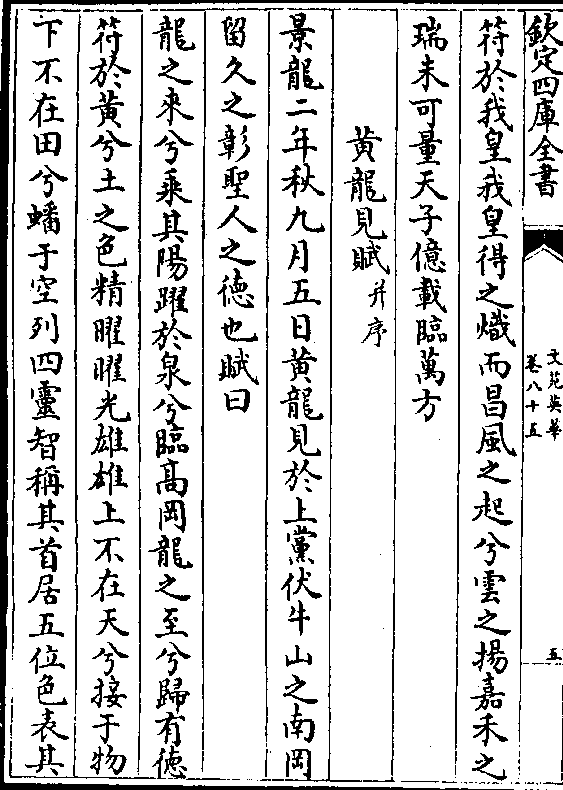 欽定四庫全書
文苑英華
卷八十五
五
符於我皇我皇得之熾而昌風之起兮雲之揚嘉禾之
瑞未可量天子億載臨萬方
黄龍見賦并序
景龍二年秋九月五日黄龍見於上黨伏牛山之南岡
留久之彰聖人之德也賦曰
龍之來兮乘其陽躍於泉兮臨高岡龍之至兮歸有徳
符於黄兮土之色精曜曜光雄雄上不在天兮接于物
下不在田兮蟠于空列四靈智稱其首居五位色表其